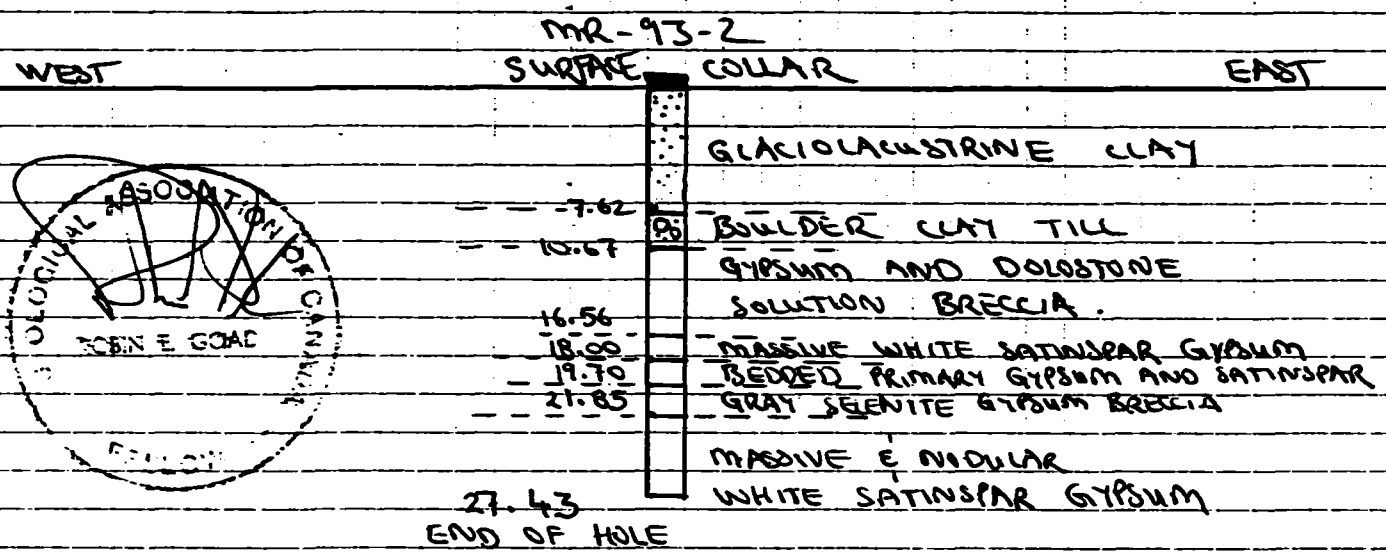 MR-93-2
WEST SURFACE COLLAR EAST
GLACIOLACUSTRINE CLAY
7.62
BOULDER CLAY TILL
10.67
GYPSUM AND DOLOSTONE
SOLUTION BRECCIA.
16.56
18.00 MASSIVE WHITE SATINSPAR GYPSUM
19.70 BEDDED PRIMARY GYPSUM AND SATINSPAR
21.85 GRAY SELENITE GYPSUM BRECCIA
MASSIVE & NODULAR
WHITE SATINSPAR GYPSUM
27.43
END OF HOLE
ASSOCIATION OF
E GOAD